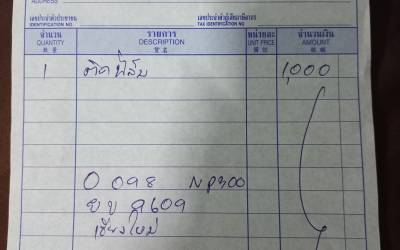 ADDRESS
เลขประจำตัวประชาชน เลขประจำตัวผู้เสียภาษีอากร
IDENTIFICATION NO. TAX IDENTIFICATION NO.
จำนวน รายการ หน่วยละ จำนวนเงิน
QUANTITY DESCRIPTION UNIT PRICE AMOUNT
1 ติดฟิล์ม 1,000
0 098 NP300
ยบ 9609
เชียงใหม่